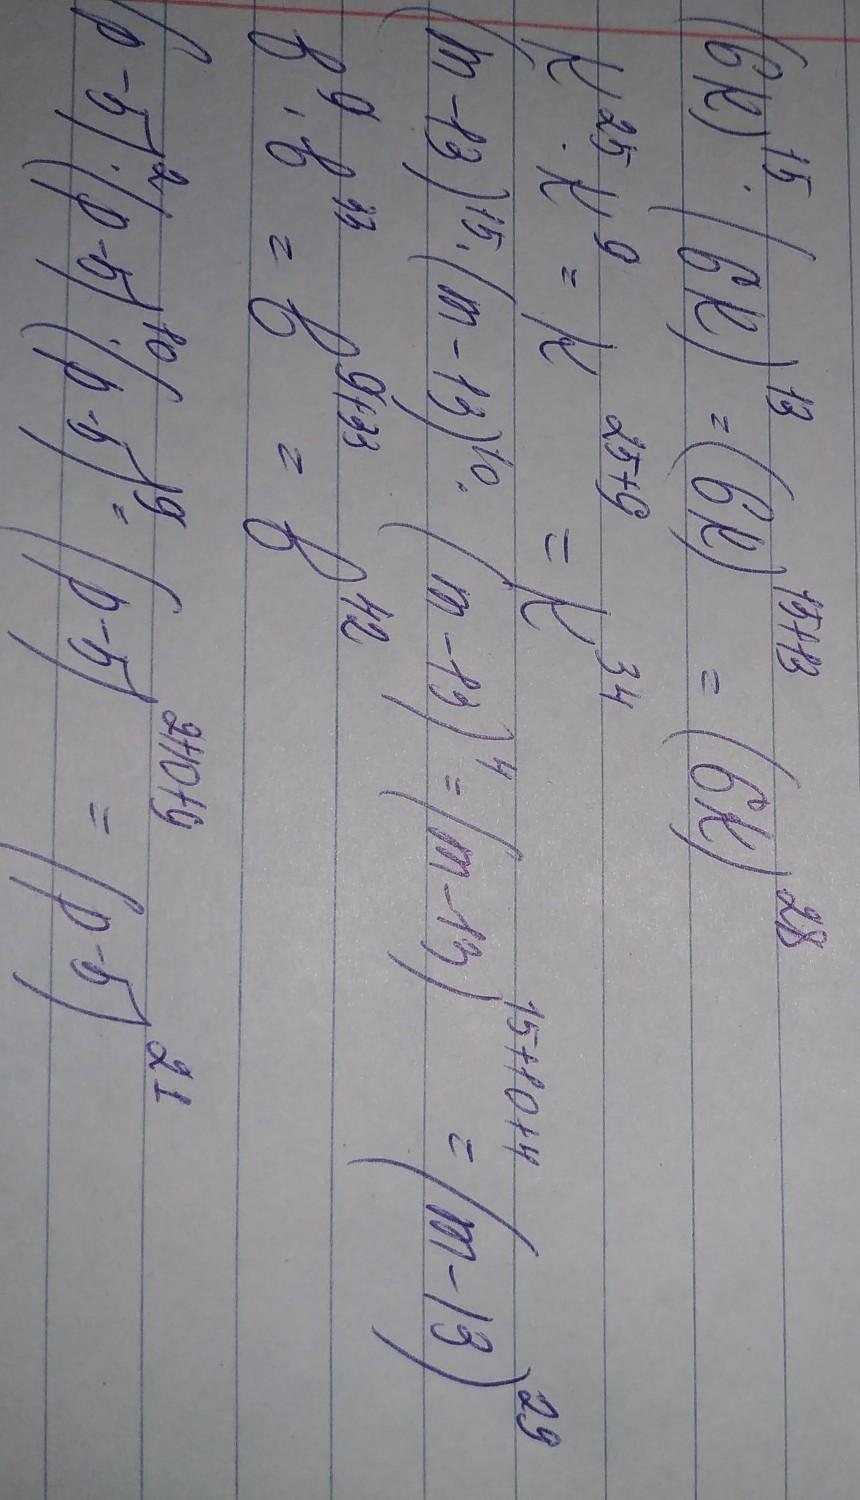 (6k)¹⁵ · (6k)¹³ = (6k)¹⁵⁺¹³ = (6k)²⁸
k²⁵ · k⁹ = k²⁵⁺⁹ = k³⁴
(m - 13)¹⁵ · (m - 13)¹⁰ · (m - 13)⁴ = (m - 13)¹⁵⁺¹⁰⁺⁴ = (m - 13)²⁹
b⁹ · b³³ = b⁹⁺³³ = b⁴²
(p - 5)² · (p - 5)¹⁰ · (p - 5)⁹ = (p - 5)²⁺¹⁰⁺⁹ = (p - 5)²¹